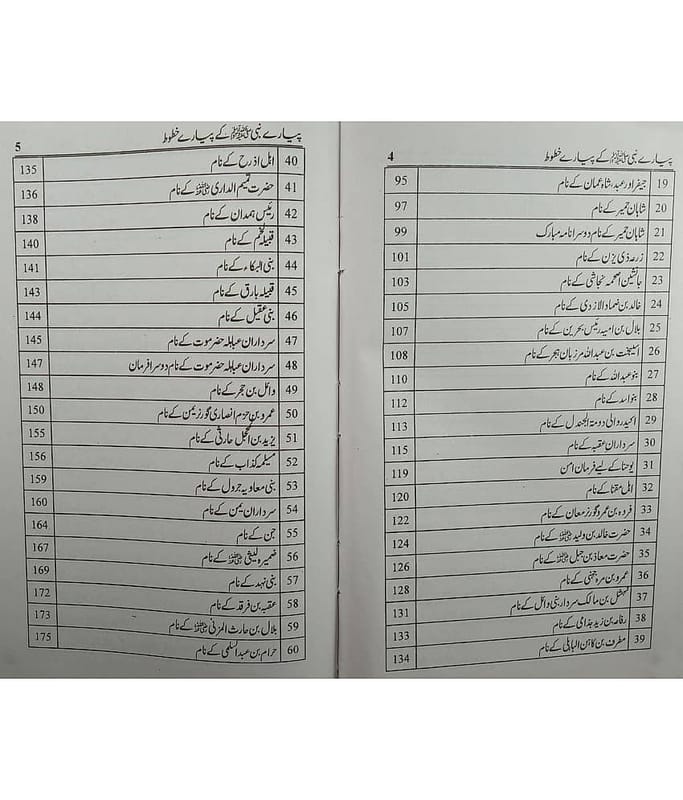 پیارے نبی ﷺ کے پیارے خطوط 4
19 جیفر اور عبد، شاہ عمان کے نام 95
20 شاہان حمیر کے نام 97
21 شاہان حمیر کے نام دوسرا نامہ مبارک 99
22 زرعہ ذی یزن کے نام 101
23 جانشین اصحمہ نجاشی کے نام 103
24 خالد بن ضماد الازدی کے نام 105
25 ہلال بن امیہ رئیس بحرین کے نام 107
26 اسیبخت بن عبداللہ مرزبان ہجر کے نام 108
27 بنو عبداللہ کے نام 110
28 بنو اسد کے نام 112
29 اکیدر والی دومۃ الجندل کے نام 113
30 سرداران عقبہ کے نام 115
31 یوحنا کے لیے فرمان امن 119
32 اہل مقنا کے نام 120
33 فروہ بن عمرو گورنر معان کے نام 122
34 حضرت خالد بن ولید ؓ کے نام 124
35 حضرت معاذ بن جبل ؓ کے نام 126
36 عمرو بن مرہ جہنی کے نام 128
37 نہشل بن مالک سردار بنی وائل کے نام 131
38 رفاعہ بن زید جذامی کے نام 133
39 مطرف بن کاہن الباہلی کے نام 134
پیارے نبی ﷺ کے پیارے خطوط 5
40 اہل اذرح کے نام 135
41 حضرت تمیم الداری ؓ کے نام 136
42 رئیس ہمدان کے نام 138
43 قبیلہ لخم کے نام 140
44 بنی البکاء کے نام 141
45 قبیلہ بارق کے نام 143
46 بنی عقیل کے نام 144
47 سرداران عباہلہ حضرموت کے نام 145
48 سرداران عباہلہ حضرموت کے نام دوسرا فرمان 147
49 وائل بن حجر کے نام 148
50 عمرو بن حزم انصاری گورنر یمن کے نام 150
51 یزید بن المحجل حارثی کے نام 155
52 مسیلمہ کذاب کے نام 156
53 بنی معاویہ جرول کے نام 159
54 سرداران یمن کے نام 160
55 جن کے نام 164
56 ضمیرہ لیثی ؓ کے نام 167
57 بنی نہد کے نام 169
58 عقبہ بن فرقد کے نام 172
59 بلال بن حارث المزنی ؓ کے نام 173
60 حرام بن عبد السلمی کے نام 175